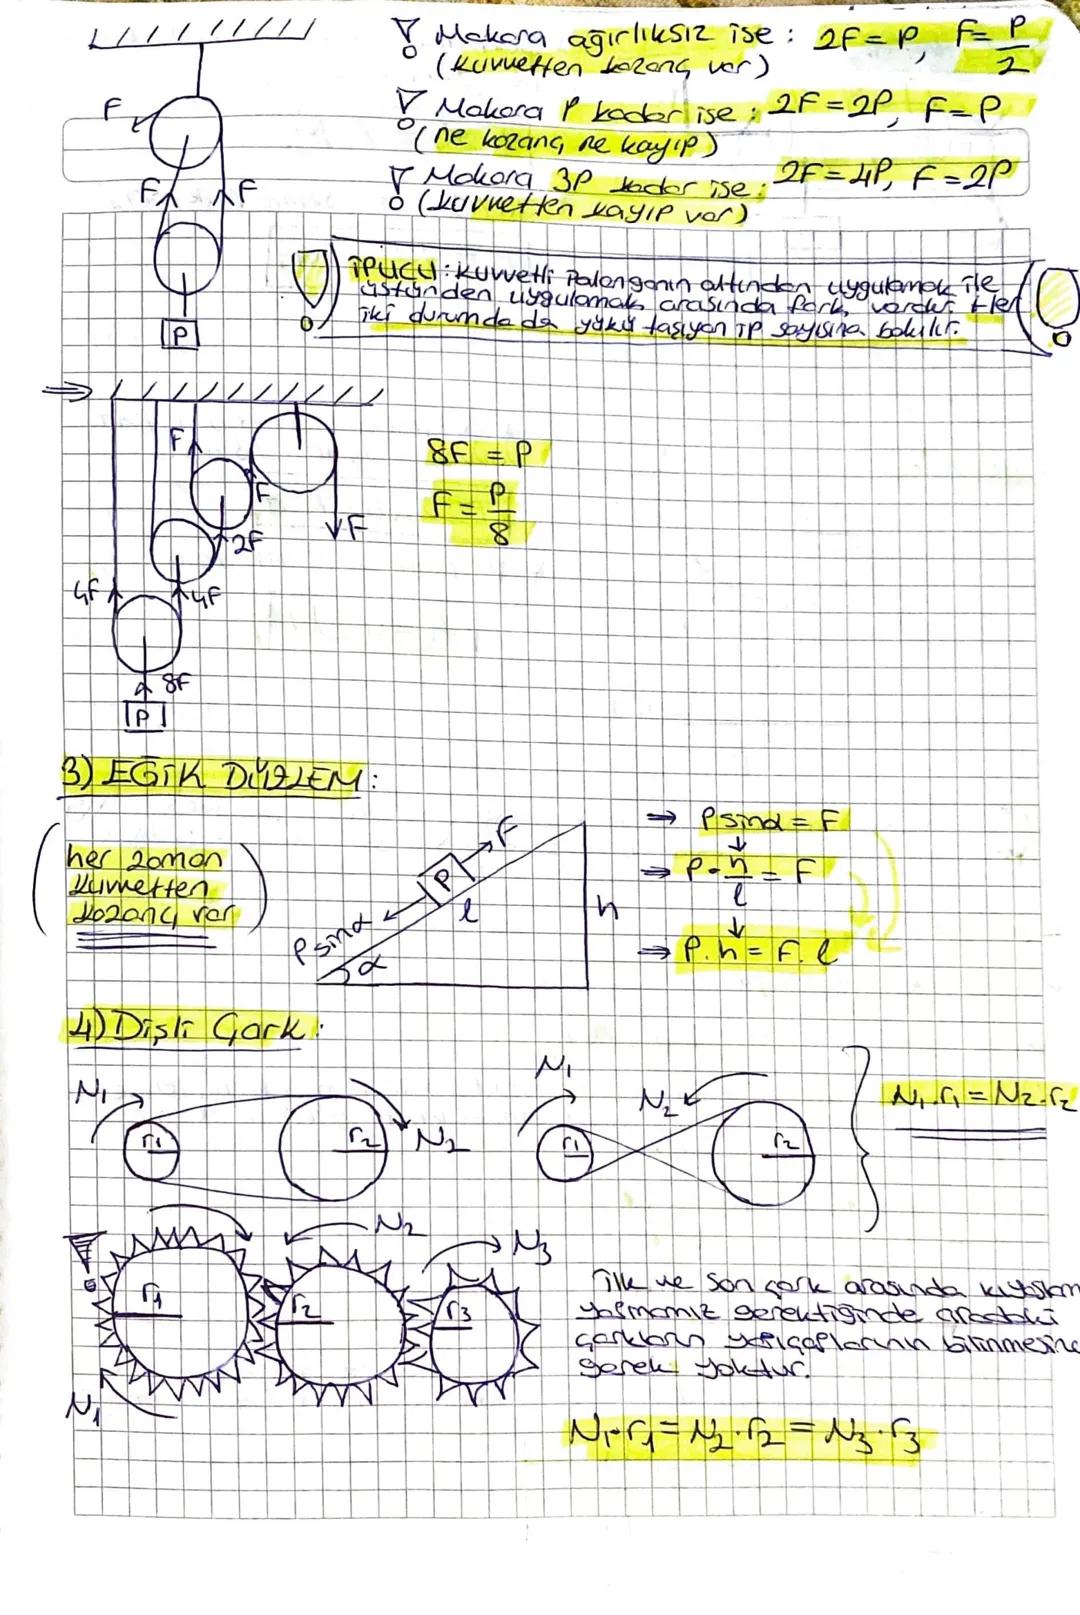 Makara ağırlıksız ise: 2F = P, F = P/2
(kuvvetten kazanç var)
Makara P kadar ise: 2F = 2P, F = P
(ne kazanç ne kayıp)
Makara 3P kadar ise: 2F = 4P, F = 2P
(kuvvetten kayıp var)
F
F
F
P
İPUCU: Kuvvetli Palanganın altından uygulamak ile
üstünden uygulamak arasında fark vardır. Her
iki durumda da yükü taşıyan ip sayısına bakılır.
8F = P
F = P/8
F
F
F
2F
4F
4F
8F
P
3) EĞİK DÜZLEM:
her zaman
kuvvetten
kazanç var
F
P
l
h
P sinα
α
⇒ P sinα = F
⇒ P · h/l = F
⇒ P.h = F.l
4) Dişli Çark:
N1
r1
r2
N2
N1
N2
r1
r2
N1.r1 = N2.r2
N2
N3
r1
r2
r3
N1
İlk ve son çark arasında
yapmamız gerektiğinde aradaki
çarkların yarıçaplarının
gerek yoktur.
N1.r1 = N2.r2 = N3.r3